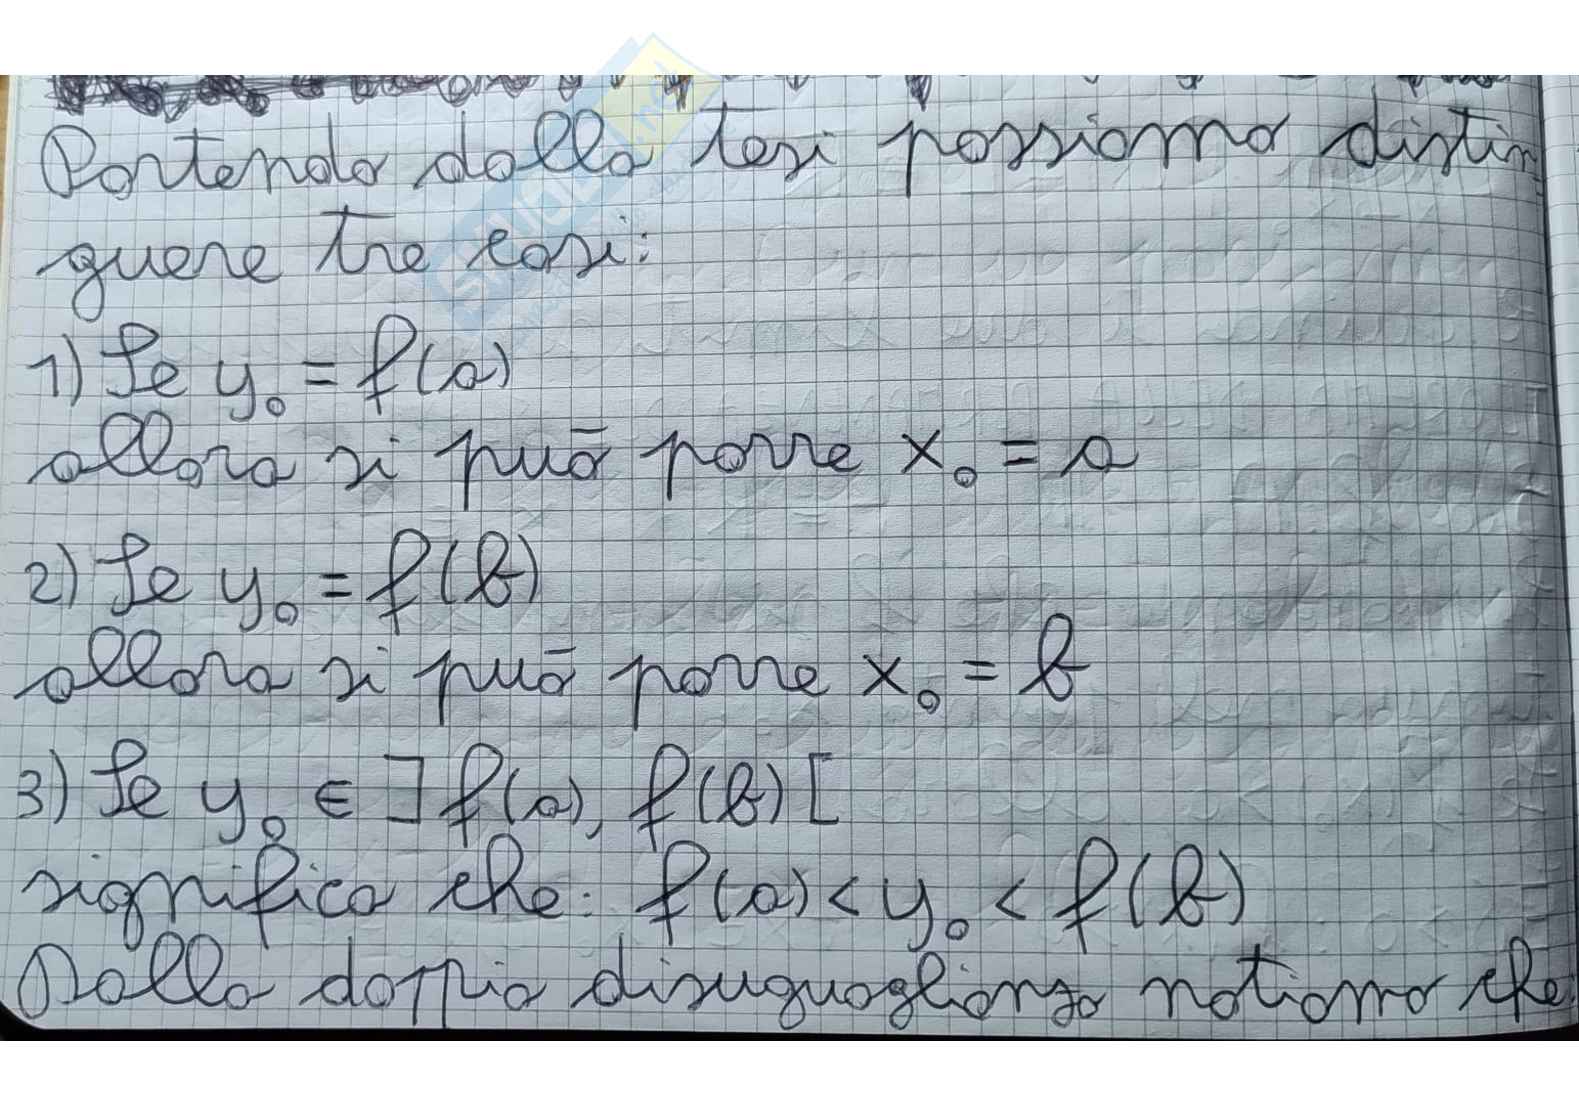 Partendo dalla tesi possiamo distin
guere tre casi:
1) Se y₀ = f(a)
allora si può porre x₀ = a
2) Se y₀ = f(b)
allora si può porre x₀ = b
3) Se y₀ ∈ ]f(a), f(b)[
significa che: f(a) < y₀ < f(b)
Dalla doppia disuguaglianza notiamo che